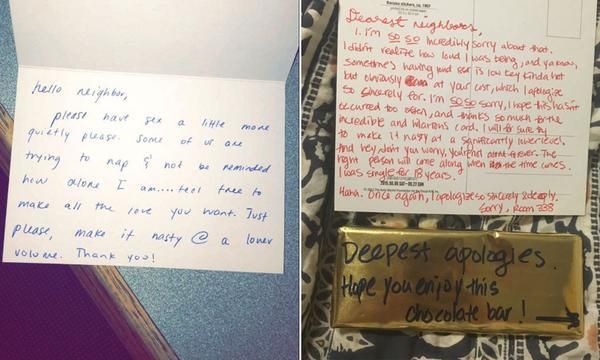 hello neighbor,
please have sex a little more
quietly please. Some of us are
trying to nap & not be reminded
how alone I am....feel free to
make all the love you want. Just
please, make it nasty @ a lower
volume. Thank you!
Dearest neighbors,
1. I'm so so incredibly sorry about that.
I didn't realize how loud I was being, and ya know,
sometimes having loud sex is low key kinda hot
but obviously at your cost, which I apologize
so sincerely for. I'm so so sorry, I hope this hasn't
occurred too often, and thanks so much for the
incredible and hilarious card. I will for sure try
to make it nasty at a significantly lower level.
And hey, don't you worry, you're not alone forever. The
right person will come along when the time comes.
I was single for 18 years.
Haha. Once again, I apologize so sincerely & deeply.
Sorry, Room 338
Deepest apologies.
Hope you enjoy this
chocolate bar!